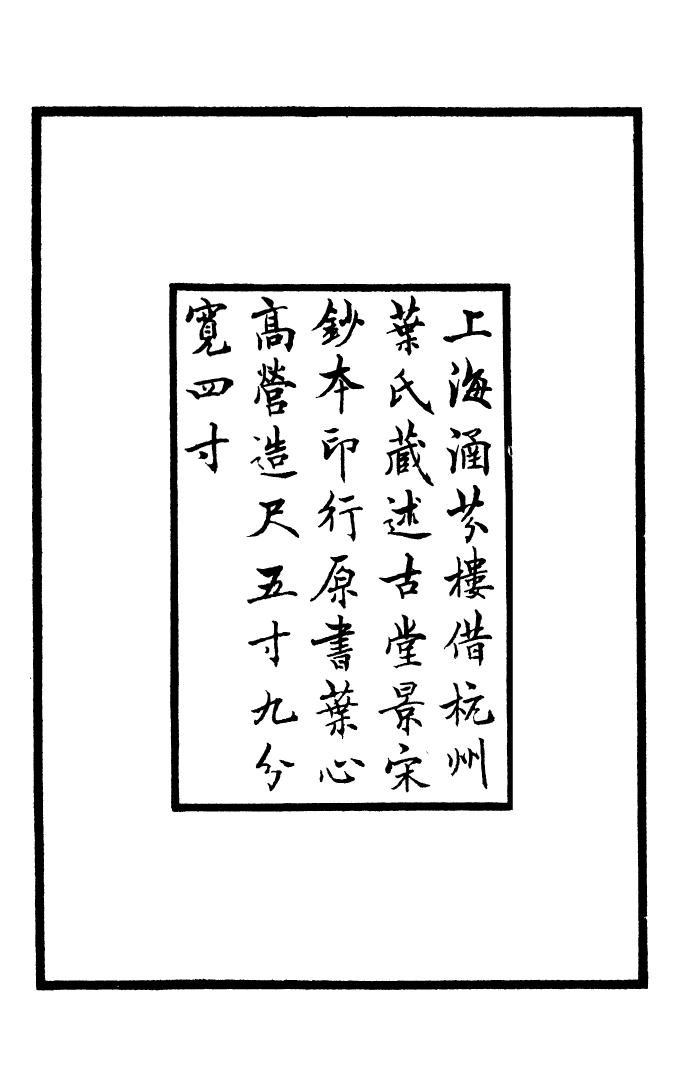 上海涵芬樓借杭州
葉氏藏述古堂景宋
鈔本印行原書葉心
高營造尺五寸九分
寬四寸